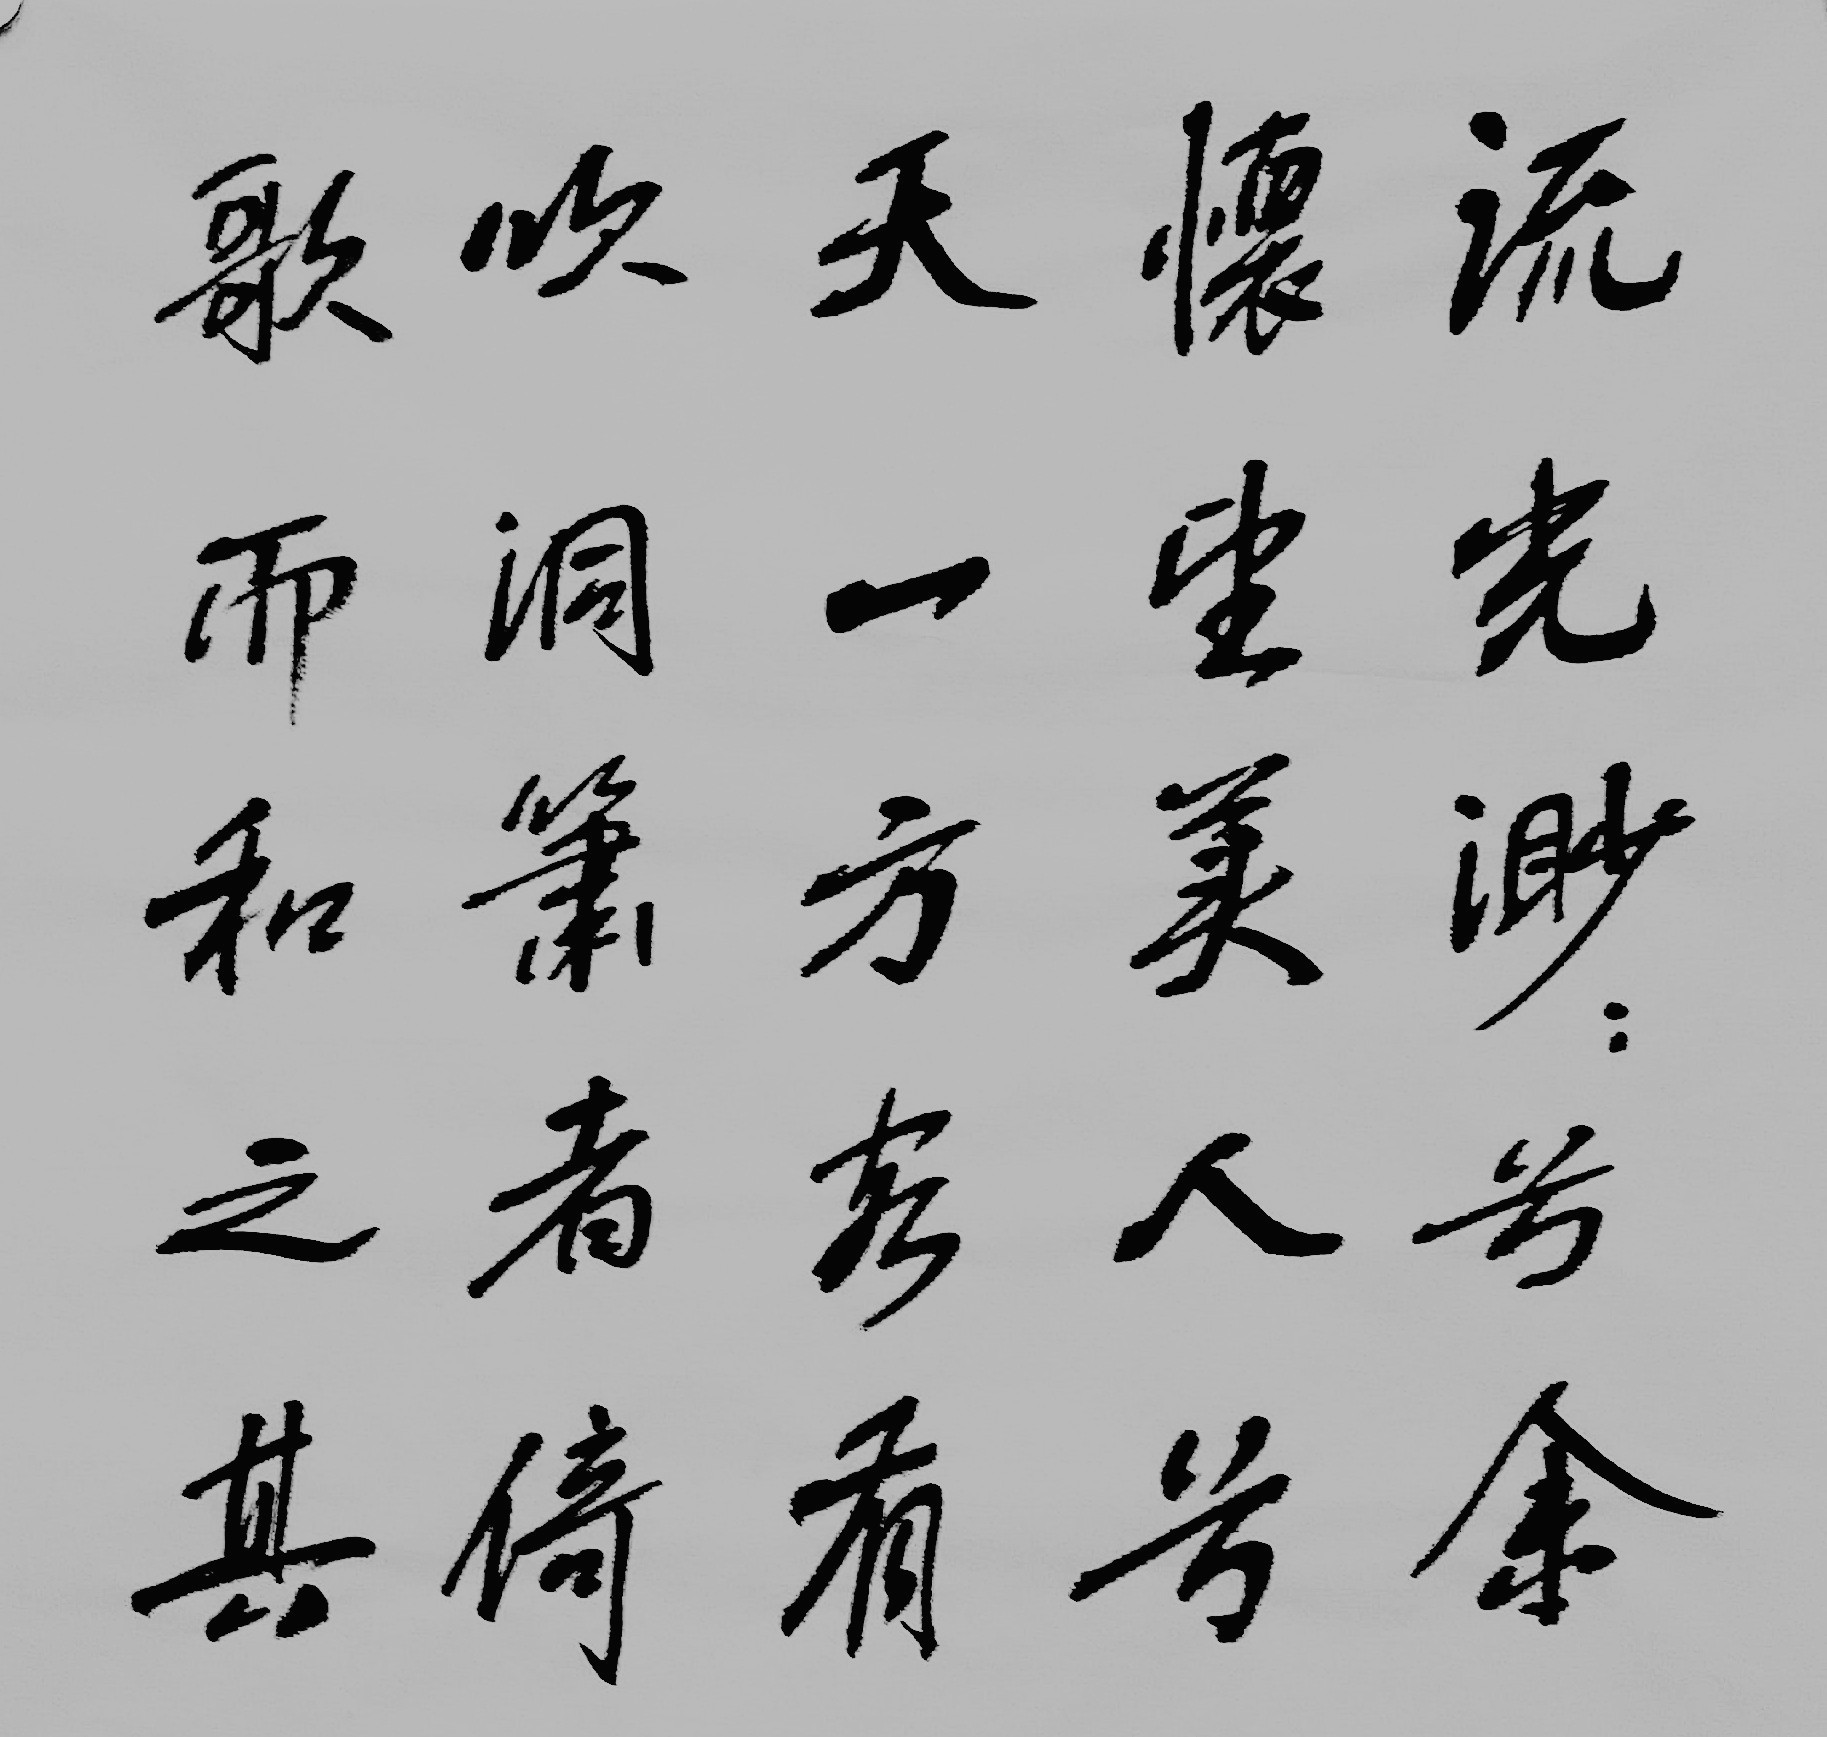 流光渺々兮余
懷望美人兮
天一方客有
吹洞簫者倚
歌而和之其